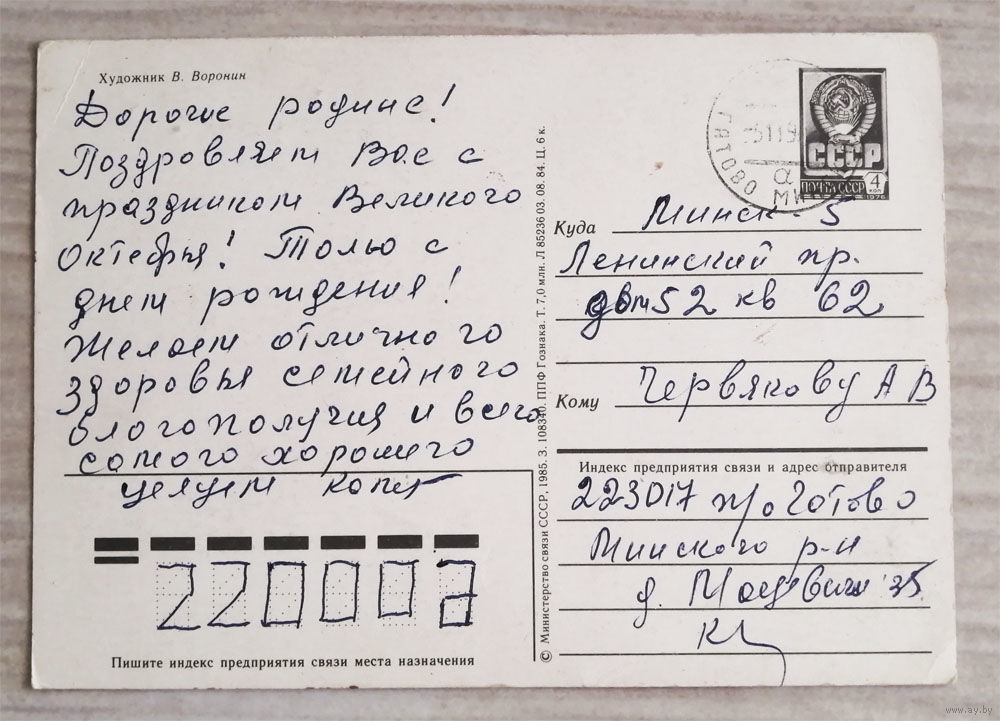 Художник В. Воронин
Дорогие родные!
Поздровляем Вас с
праздником Великого
Октебря! Толю с
днем рождения!
Желаем отличного
здоровья семейного
благополучия и всего
самого хорошего
целуем
Пишите индекс предприятия связи места назначения
© Министерство связи СССР, 1985. З. 108340. ППФ Гознака. Т. 7,0 млн. Л 85236 03. 08. 84. Ц. 6 к.
СССР
ПОЧТА СССР 4 КОП
1976
ГАТОВО
Куда Минск-5
Ленинский пр.
дом 52 кв 62
Кому Червякову А В
Индекс предприятия связи и адрес отправителя
223017 п/о Готово
Минского р-н
д. 35
www.ay.by